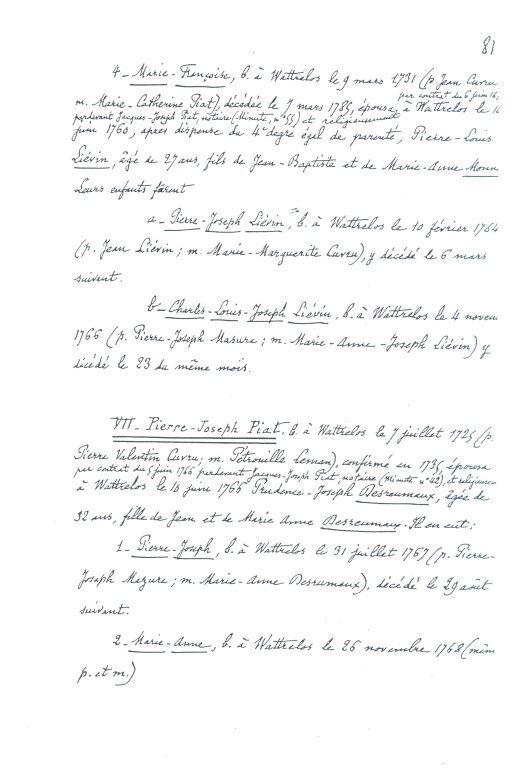 81
4 - Marie - Françoise, b. à Wattrelos le 9 mars 1731 (p. Jean Cuvru
par contrat du 6 juin 16,
m. Marie - Catherine Piat), décédée le 7 mars 1785, épousa, à Wattrelos le 16
perdevant Jacques-Joseph Piat, notaire (Minute, n°55) et religieusement
juin 1760, après dispense du 4e degré égal de parenté, Pierre - Louis
Liévin, âgé de 27 ans, fils de Jean - Baptiste et de Marie-Anne
Leurs enfants furent
a - Pierre - Joseph Liévin, b. à Wattrelos le 10 février 1764
(p. Jean Liévin ; m. Marie - Marguerite Cuvru), y décédé le 6 mars
suivant.
b - Charles - Louis - Joseph Liévin, b. à Wattrelos le 4 novem
1766 (p. Pierre-Joseph Masure ; m. Marie - Anne - Joseph Liévin) y
décédé le 23 du même mois.
VII - Pierre - Joseph Piat, b. à Wattrelos le 7 juillet 1725 (p.
Pierre Valentin Cuvru; m. Pétronille Leman), confirmé en 1735, épousa
par contrat du 5 juin 1766 perdevant Jacques-Joseph Piat, notaire (Minute n°42), et religieusem
à Wattrelos le 10 juin 1766 Prudence - Joseph Desreumaux, âgée de
32 ans, fille de Jean et de Marie Anne Desreumaux. Il en eut :
1 - Pierre - Joseph, b. à Wattrelos le 31 juillet 1767 (p. Pierre-
Joseph Mazure ; m. Marie - Anne Desrumaux), décédé le 29 août
suivant.
2 - Marie - Anne, b. à Wattrelos le 26 novembre 1768 (mêm
p. et m.)